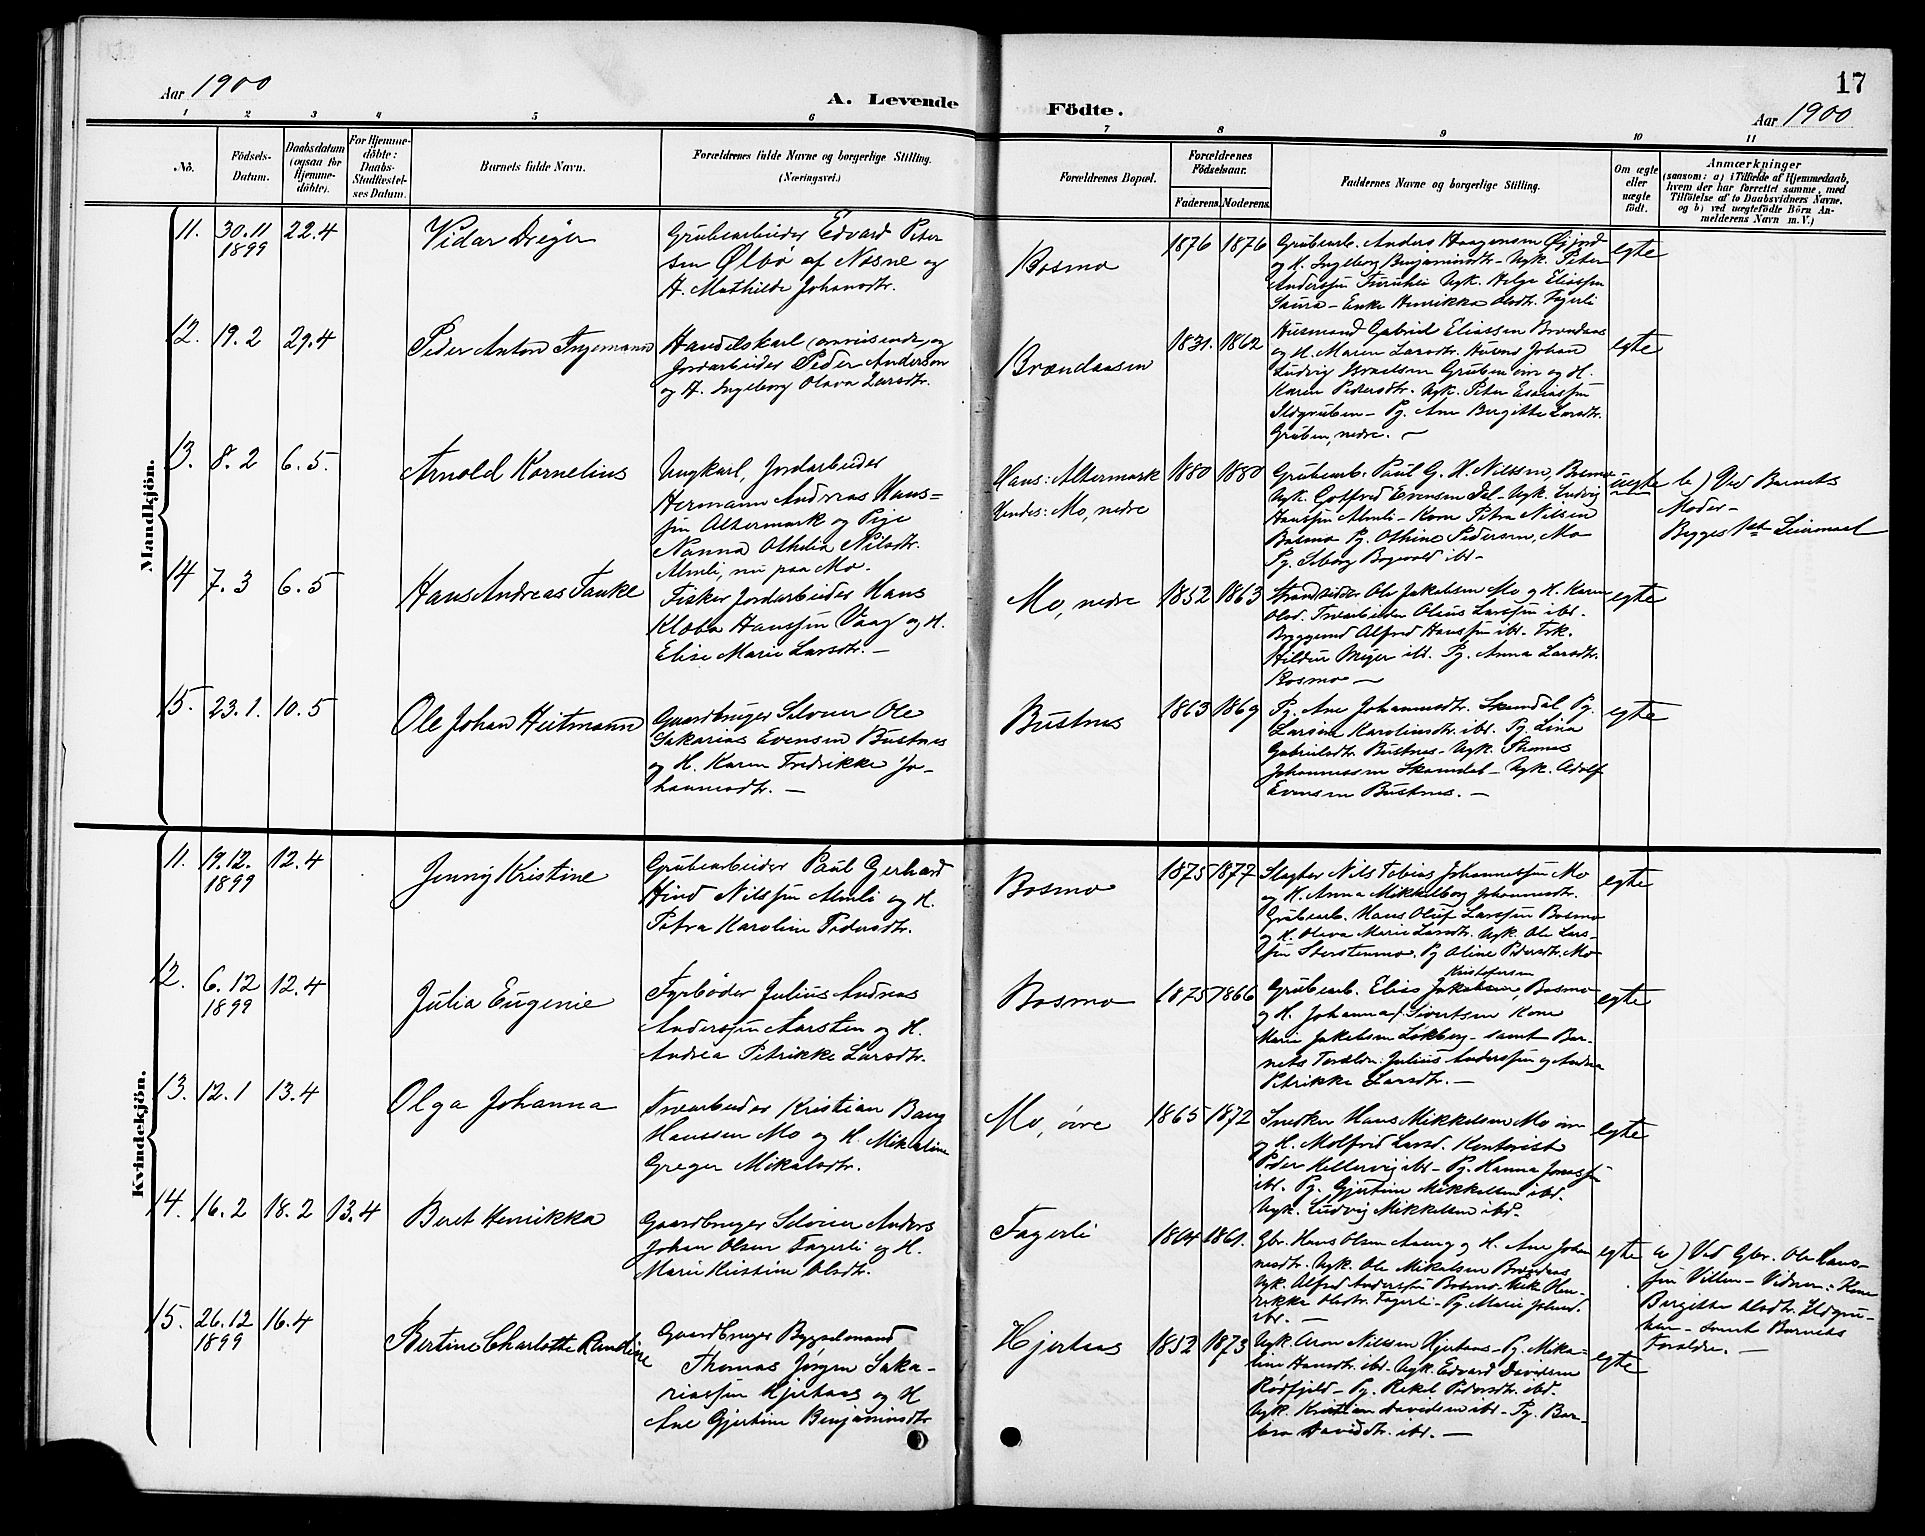 Aar 1900
A. Levende
Födte.
17
Aar 1900
1 2 3 4 5 6 7 8 9 10 11
No.
Födsels-
Datum.
Daabsdatum
(ogsaa for
Hjemme-
döbte).
For Hjemme-
döbte:
Daabs-
Stadfæstel-
ses Datum.
Barnets fulde Navn.
Forældrenes fulde Navne og borgerlige Stilling.
(Næringsvei.)
Forældrenes Bopæl.
Forældrenes
Födselsaar.
Faderens. Moderens.
Faddernes Navne og borgerlige Stilling.
Om ægte
eller
uægte
födt.
Anmærkninger
(saasom: a) i Tilfælde af Hjemmedaab,
hvem der har forrettet samme, med
Tilföielse af to Daabsvidners Navne,
og b) ved uægtefödte Börn An-
melderens Navn m. V.)
Mandkjön.
11.
30.11
1899
22.4
Vidar Dreyer
Grubearbeider Edvard Peter
sen Ølbø af Næsne og
H. Mathilde Johansdtr.
Bosmo
1876
1876
Grubearb. Anders Haagensen
og H. Ingeborg Benjaminsdtr. Ugk. Peter
Anderssen Furuhei Ugk. Helge Eliassen
Saura - Enke Henrikka Olsdtr. Fagerli
egte
12.
19.2
29.4
Peder Anton Ingemann
Handelskarl (omreisende, og
Jordarbeider Peder Anderson
og H. Ingeborg Olava Larsdtr.
Brændaasen
1831.
1862
Husmand Gabriel Eliassen Brændaas
og H. Maren Larsdtr. Husmd Johan
Ludvig Israelsen Gruben øvre og H.
Karen Pedersdtr. Ugk. Peter Esaiassen
Ildgruben - Pg. Ane Birgitte Larsdtr.
Gruben, nedre. -
egte
13.
8.2
6.5.
Arnold Kornelius
Ungkarl, Jordarbeider
Hermann Andreas Hans-
sen Altermark og Pige
Nanna Othelia Nilsdtr.
Almli, nu paa Mo.
Hans: Altermark
Hendes: Mo, nedre
1880
1880
Grubearb. Paul G. H. Nilssen, Bosmo
Ugk. Gotfred Evensen Dal - Ugk. Ludvig
Hanssen Almli - Kone Petra Nilsen
Bosmo Pg. Othine Pedersen, Mo
Pg. ibr -
uegte
b) Ved Barnets
Moder -
Begges 1ste Leiermaal
14
7.3
6.5
Hans Andreas Tanke
Fisker Jordarbeider Hans
Klæbo Hanssen Vaag og H.
Elise Marie Larsdtr. -
Mo, nedre
1852
1863
Strandsidder Ole Jakobsen Mo og H. Karen
Olsd. Træarbeider Olaus Larssen ibr.
Byggmd Alfred Hanssen ibr. Frk.
Hildur Meyer ibd. Pg. Anna Larsdtr.
Bosmo -
egte
15.
23.1.
10.5
Ole Johan Heitmann
Gaardbruger Selveier Ole
Sakarias Evensen Bustnes
og H. Karen Fredrikke Jo-
hannesdtr. -
Bustnes
1863
1869
Pg. Ane Johannesdtr. Skamdal, Pg.
Larsine Karolinsdtr. ibr. Pg. Lina
Gabrielsdtr. Bustnes - Ugk. Thomas
Johannessen Skamdal - Ugk. Adolf
Evensen Bustnes. -
egte
Kvindekjön.
11.
19.12.
1899
12.4
Jenny Kristine
Grubearbeider Paul Gerhard
Hind Nilssen Almli og H.
Petra Karoline Pedersdtr.
Bosmo
1875
1877
Slagter Nils Tobias Johannessen Mo
og H. Anna Mikkelborg Johannesdtr.
Grubearb. Hans Oluf Larssen Bosmo
og H. Olava Marie Larsdtr. Ugk. Ole Lars-
sen Storstenmo. Pg Aline Pedersdtr. Mo
egte
12.
6.12
1899
12.4
Julia Eugenie
Fyrbøder Julius Andreas
Anderssen Aarsten og H.
Andrea Petrikke Larsdtr.
Bosmo
1875
1866
Kristofersen
Grubearb. Elias Jakobsen, Bosmo
og H. Johanna/ Sivertsen Kone
Marie Jakobsen Løkberg - samt Bar-
nets Forældre: Julius Anderssen og Andrea
Petrikke Larsdtr. -
egte
13.
12.1
13.4
Olga Johanna
Træarbeider Kristian Bang
Hanssen Mo og H. Mikaline
Greger Mikalsdtr.
Mo, øvre
1865
1872
Snedker Hans Mikkelsen Mo øvre
og H. Molfrid Larsd. Kontorist
Peder Hellesvig ibr - Pg. Hanna Jonassen
ibr. Pg. Gjertine Mikkelsen ibd.
Ugk. Ludvig Mikkelsen ibd.
egte
14.
16.2
18.2
13.4
Beret Henrikka
Gaardbruger Selveier Anders
Johan Olsen Fagerli og H.
Marie Kristine Olsdtr.
Fagerli
1864
1861.
Gbr. Hans Olsen Aaeng og H. Ane Johan
nesdtr. Ugk. Ole Mikalsen Brændaas
Ugk. Alfred Anderssen Bosmo - Enke Hen-
rikka Olsdtr. Fagerli - Pg. Marie Johansd.
ibr. -
egte
a) Ved Gbr. Ole Hans-
sen Villen - Vidner: Kone
Birgitte Olsdtr. Ildgru-
ben - samt Barnets
Forældre. -
15.
26.12
1899
16.4
Bertine Charlotte Randine
Gaardbruger Bygselmand
Thomas Jørgen Saka-
riassen Hjertaas og H
Ane Gjertine Benjaminsdtr
Hjertaas
1852
1873
Ugk. Aron Nilssen Hjertaas - Pg. Mika-
line Hansdtr. ibr - Ugk. Edvard Davidsen
Rødfjeld - Pg. Rekel Pedersdtr. ibd.
Ugk. Kristian Davidsen ibr - Pg. Bar-
bra Daviddtr. ibr. -
egte